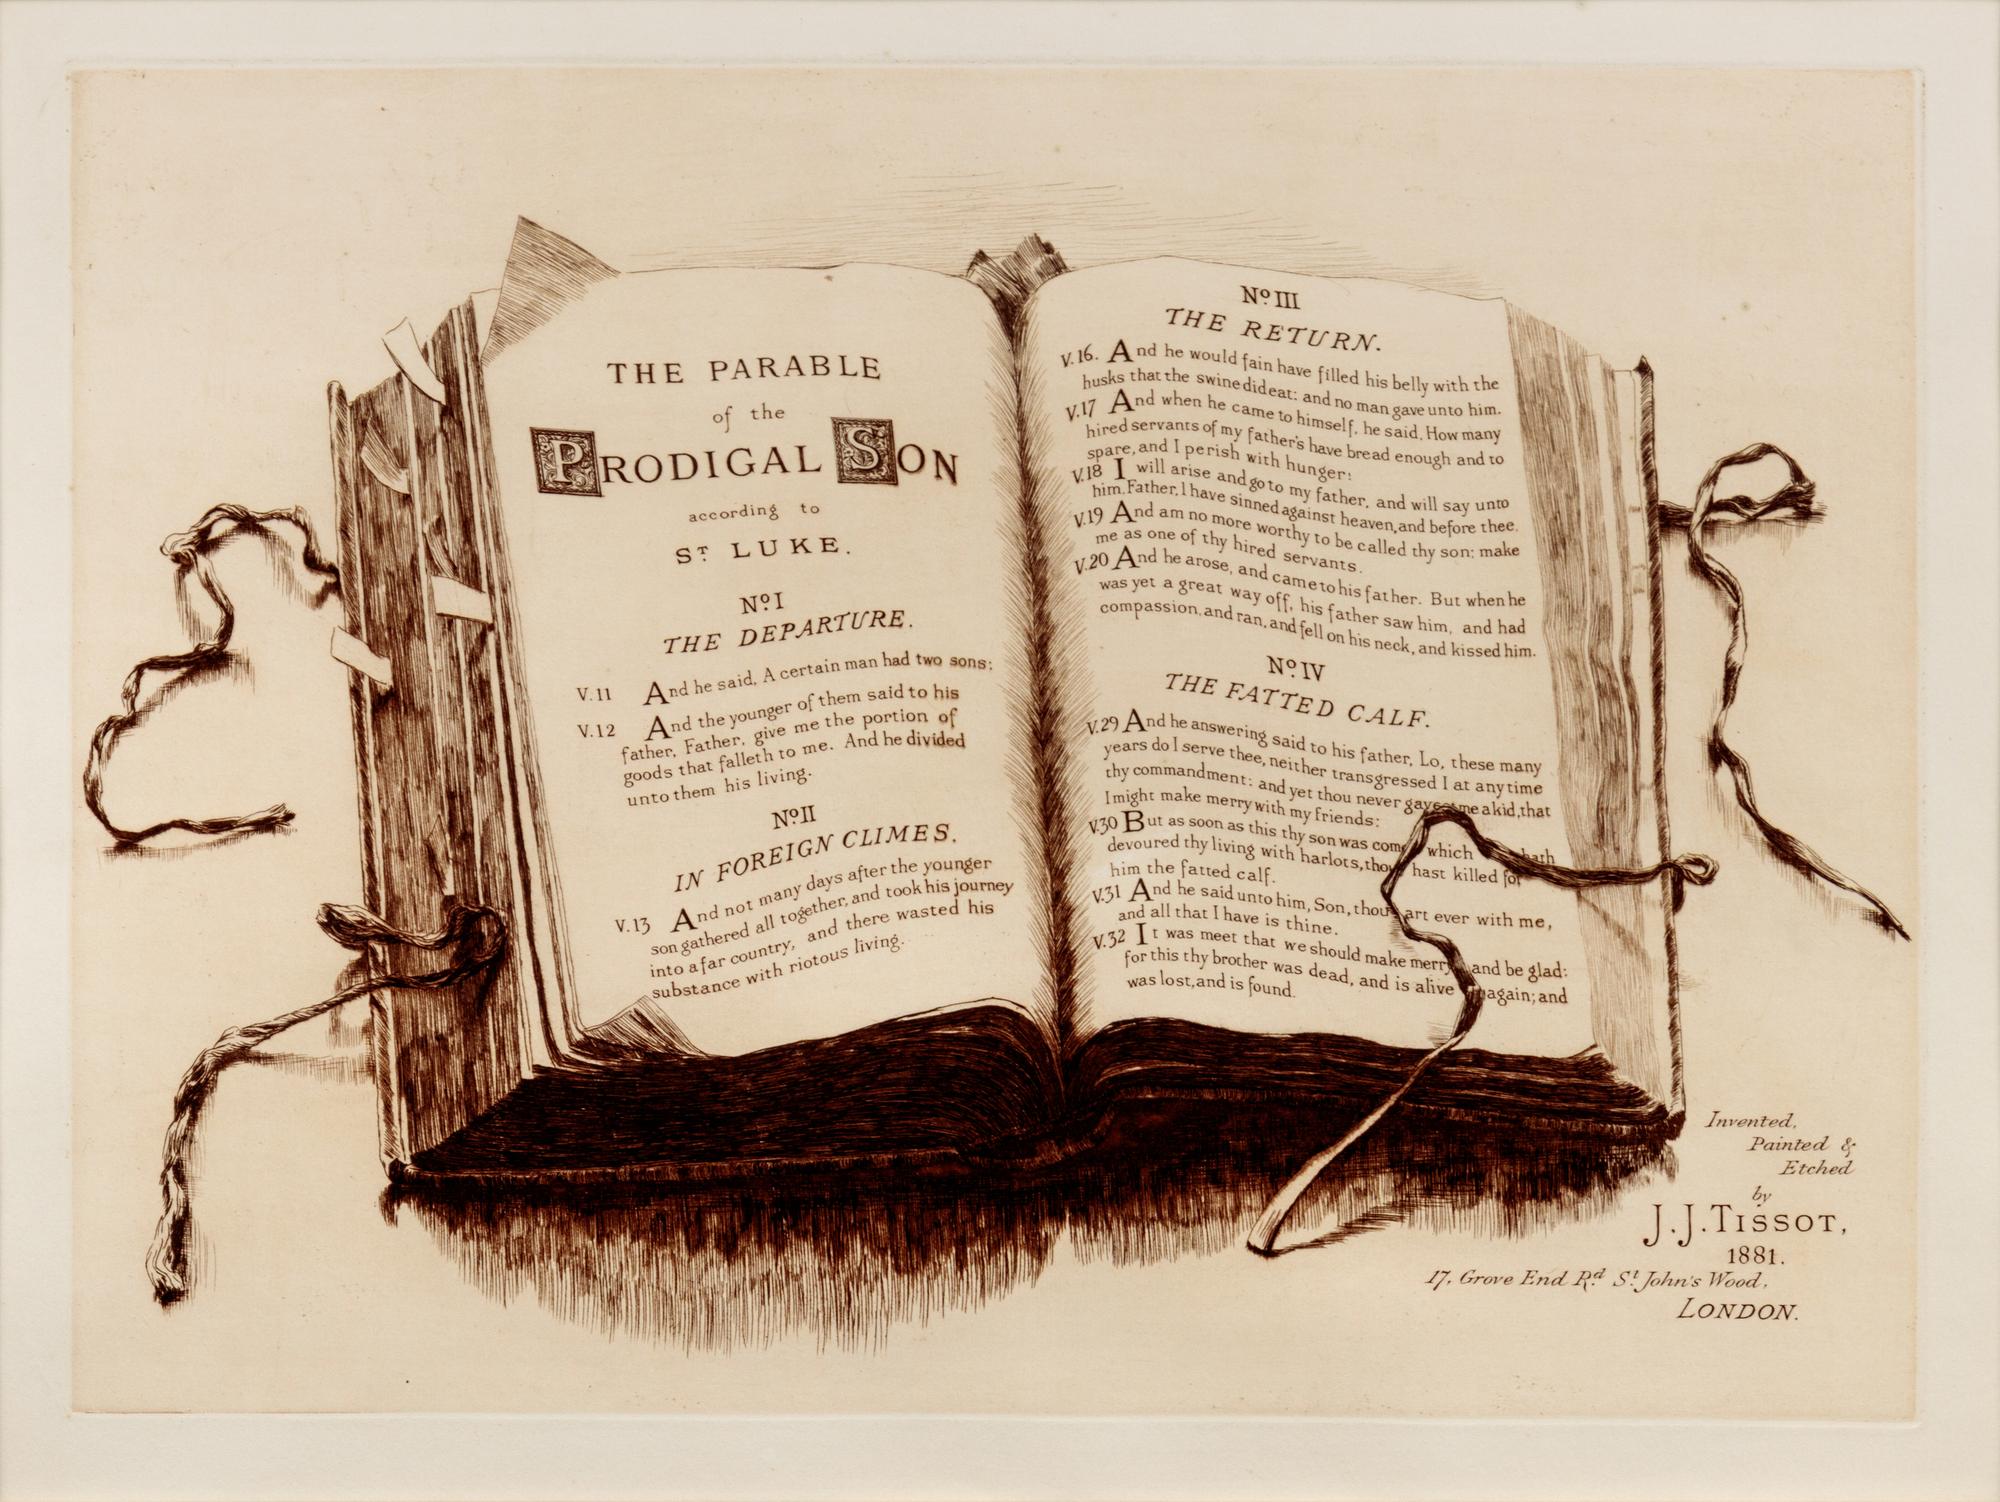 THE PARABLE
of the
PRODIGAL SON
according to
ST LUKE.
No I
THE DEPARTURE.
V.11 And he said, A certain man had two sons:
V.12 And the younger of them said to his
father, Father, give me the portion of
goods that falleth to me. And he divided
unto them his living.
No II
IN FOREIGN CLIMES.
V.13 And not many days after the younger
son gathered all together, and took his journey
into a far country, and there wasted his
substance with riotous living.
No III
THE RETURN.
V.16. And he would fain have filled his belly with the
husks that the swine did eat: and no man gave unto him.
V.17 And when he came to himself, he said, How many
hired servants of my father's have bread enough and to
spare, and I perish with hunger:
V.18 I will arise and go to my father, and will say unto
him, Father, I have sinned against heaven, and before thee.
V.19 And am no more worthy to be called thy son: make
me as one of thy hired servants.
V.20 And he arose, and came to his father. But when he
was yet a great way off, his father saw him, and had
compassion, and ran, and fell on his neck, and kissed him.
No IV
THE FATTED CALF.
V.29 And he answering said to his father, Lo, these many
years do I serve thee, neither transgressed I at any time
thy commandment: and yet thou never gavest me a kid, that
I might make merry with my friends:
V.30 But as soon as this thy son was come which hath
devoured thy living with harlots, thou hast killed for
him the fatted calf.
V.31 And he said unto him, Son, thou art ever with me,
and all that I have is thine.
V.32 It was meet that we should make merry and be glad:
for this thy brother was dead, and is alive again; and
was lost, and is found.
Invented,
Painted &
Etched
by
J.J.TISSOT,
1881.
17, Grove End Rd St John's Wood,
LONDON.